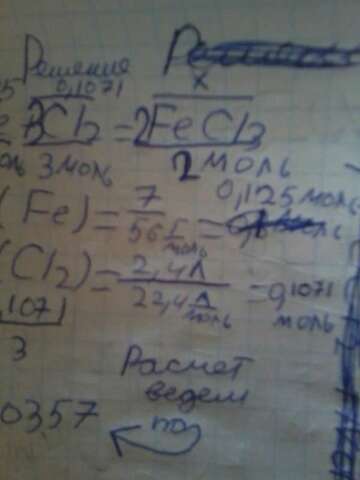 Решение
25 0,1071 x
e 3Cl2 = 2FeCl3
оль 3моль 2моль
(Fe) = 7 / 56 г/моль = 0,125 моль
(Cl2) = 2,4л / 22,4 л/моль = 0,1071 моль
,1071
3
Расчет
ведем
по
0357